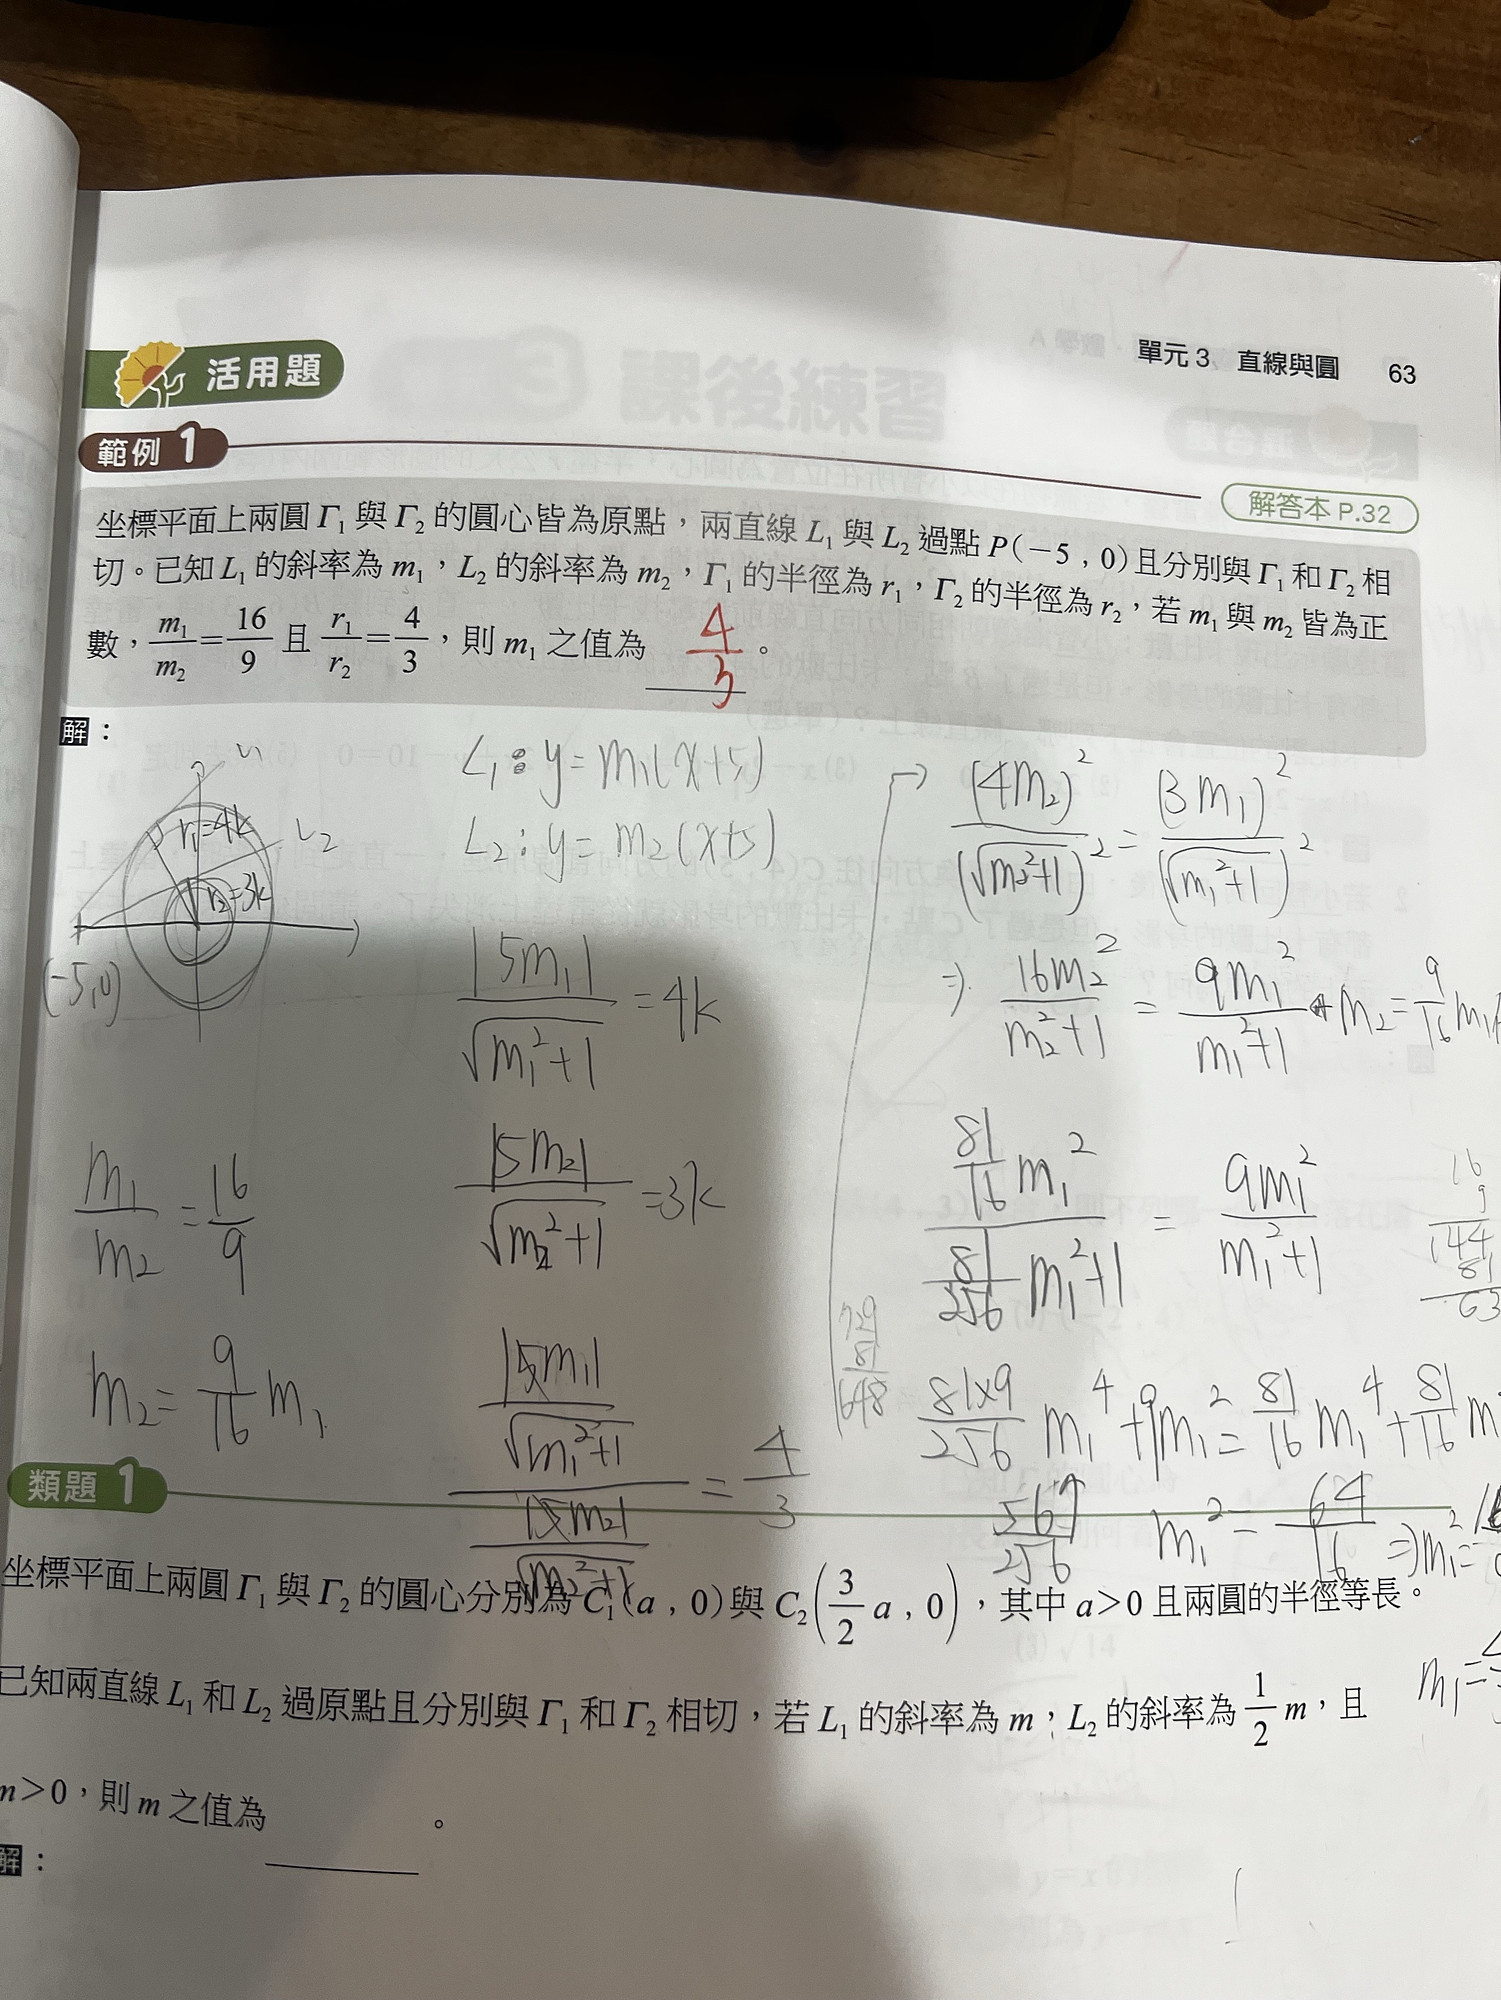 單元 3 直線與圓 63
活用題
範例 1
解答本 P.32
坐標平面上兩圓 Γ₁ 與 Γ₂ 的圓心皆為原點，兩直線 L₁ 與 L₂ 過點 P(−5 , 0) 且分別與 Γ₁ 和 Γ₂ 相
切。已知 L₁ 的斜率為 m₁，L₂ 的斜率為 m₂，Γ₁ 的半徑為 r₁，Γ₂ 的半徑為 r₂，若 m₁ 與 m₂ 皆為正
數，m₁/m₂ = 16/9 且 r₁/r₂ = 4/3，則 m₁ 之值為 4/3 。
解：
r₁=4k
L₂
r₂=3k
(-5,0)
m₁/m₂ = 16/9
m₂ = 9/16 m₁
L₁: y = m₁(x+5)
L₂: y = m₂(x+5)
|5m₁|/√(m₁²+1) = 4k
|5m₂|/√(m₂²+1) = 3k
(|5m₁|/√(m₁²+1))/(|5m₂|/√(m₂²+1)) = 4/3
→ (4m₂)²/(√(m₂²+1))² = (3m₁)²/(√(m₁²+1))²
⇒ 16m₂²/(m₂²+1) = 9m₁²/(m₁²+1) m₂ = 9/16 m₁
(81/16 m₁²)/(81/256 m₁²+1) = 9m₁²/(m₁²+1)
16
9
144
81
63
729
81
648
81×9/256 m₁⁴ + 9m₁² = 81/16 m₁⁴ + 81/16 m
567/256
m₁² = 64/16 ⇒ m₁² =
m₁ =
類題 1
坐標平面上兩圓 Γ₁ 與 Γ₂ 的圓心分別為 C₁(a , 0) 與 C₂(3/2 a , 0)，其中 a>0 且兩圓的半徑等長。
已知兩直線 L₁ 和 L₂ 過原點且分別與 Γ₁ 和 Γ₂ 相切，若 L₁ 的斜率為 m，L₂ 的斜率為 1/2 m，且
m>0，則 m 之值為 。
解：